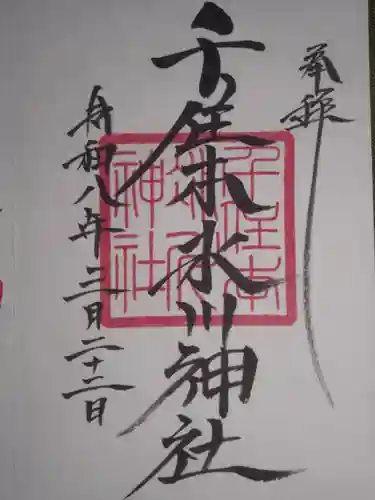 奉拝
千住本氷川神社
令和八年三月二十二日
千住本
氷川
神社